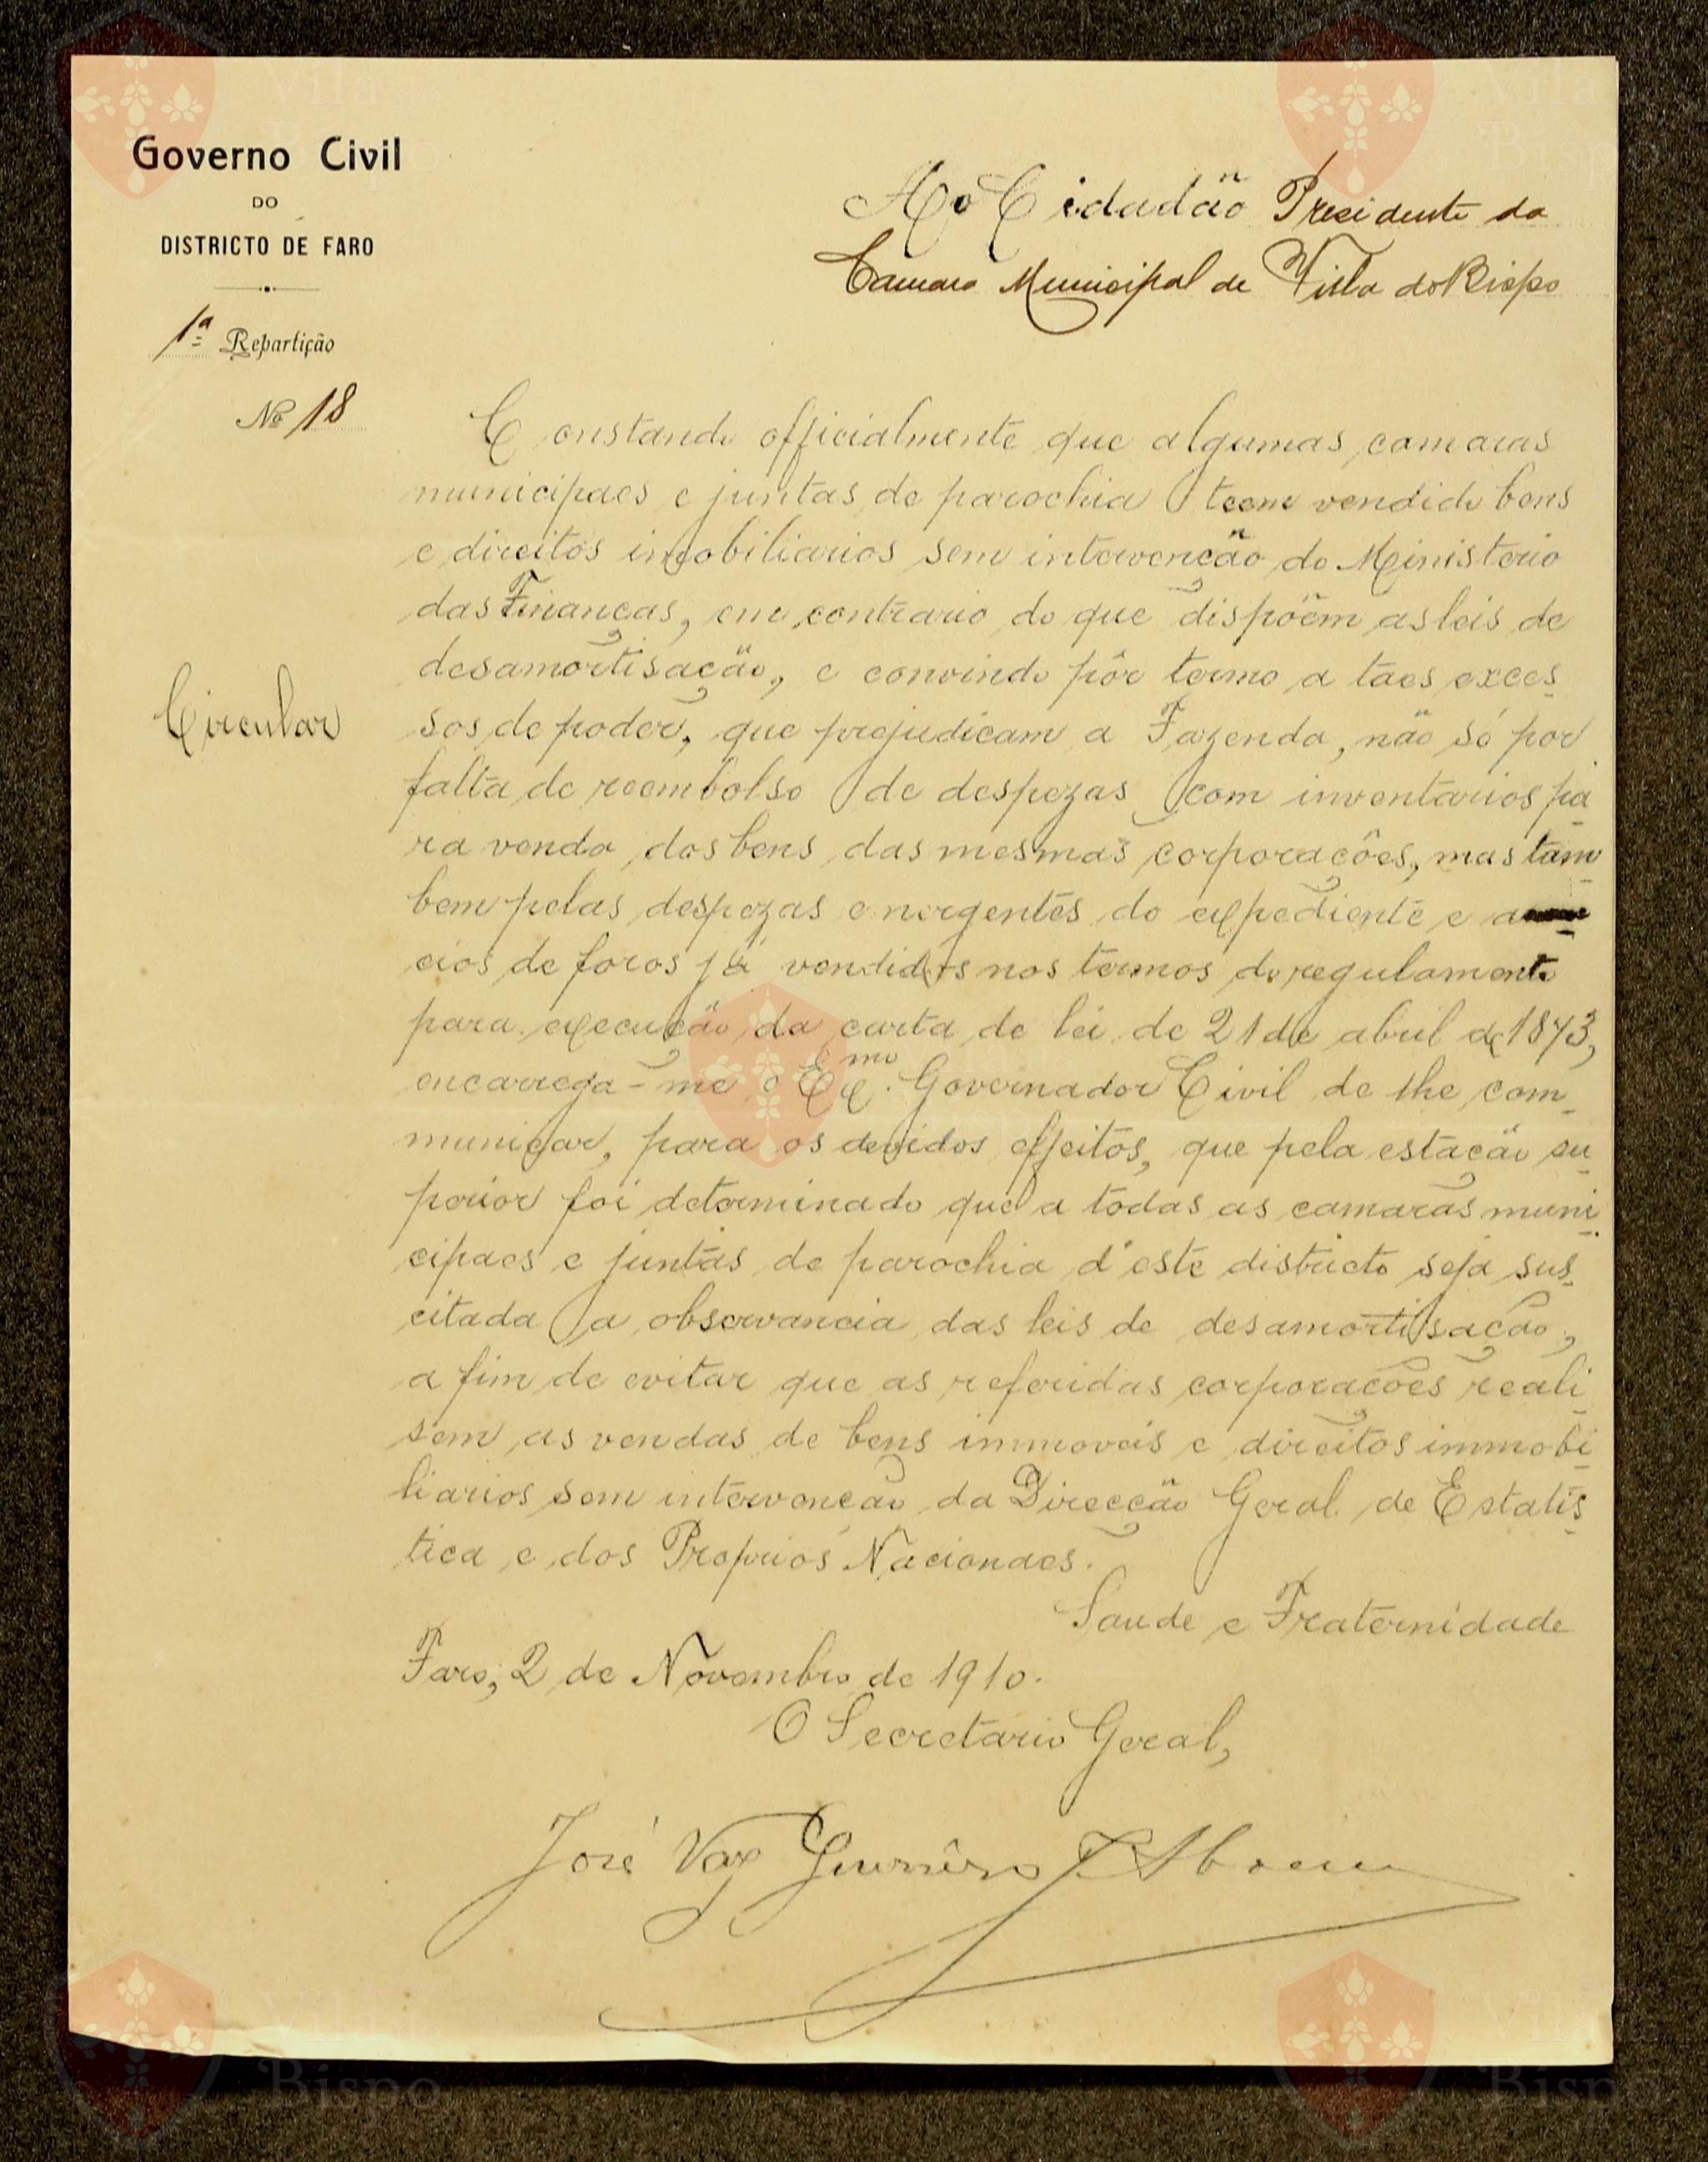 Governo Civil
DO
DISTRICTO DE FARO
1ª Repartição
Nº 18
Ao Cidadão Presidente da
Camara Municipal de Villa do Bispo
Circular
Constando officialmente que algumas camaras
municipaes e juntas de parochia teem vendido bens
e direitos imobiliarios sem intervenção do Ministerio
das Finanças, em contrario do que dispõem as leis de
desamortisação, e convindo pôr termo a taes exces-
sos de poder, que prejudicam a Fazenda, não só por
falta de reembolso de despezas com inventarios pa-
ra venda dos bens das mesmas corporações, mas tam-
bem pelas despezas emergentes do expediente e
cios de foros já vendidos nos termos do regulamento
para execução da carta de lei de 21 de abril de 1873,
encarrega-me o Exmo. Governador Civil de lhe com-
municar, para os devidos effeitos, que pela estação su-
perior foi determinado que a todas as camaras muni-
cipaes e juntas de parochia d'este districto seja sus-
citada a observancia das leis de desamortisação,
a fim de evitar que as referidas corporações reali-
sem as vendas de bens immoveis e direitos immobi-
liarios sem intervenção da Direcção Geral de Estatis-
tica e dos Proprios Nacionaes.
Saude e Fraternidade
Faro, 2 de Novembro de 1910.
O Secretario Geral,
José Vaz Guerreiro
Vila do
Bispo